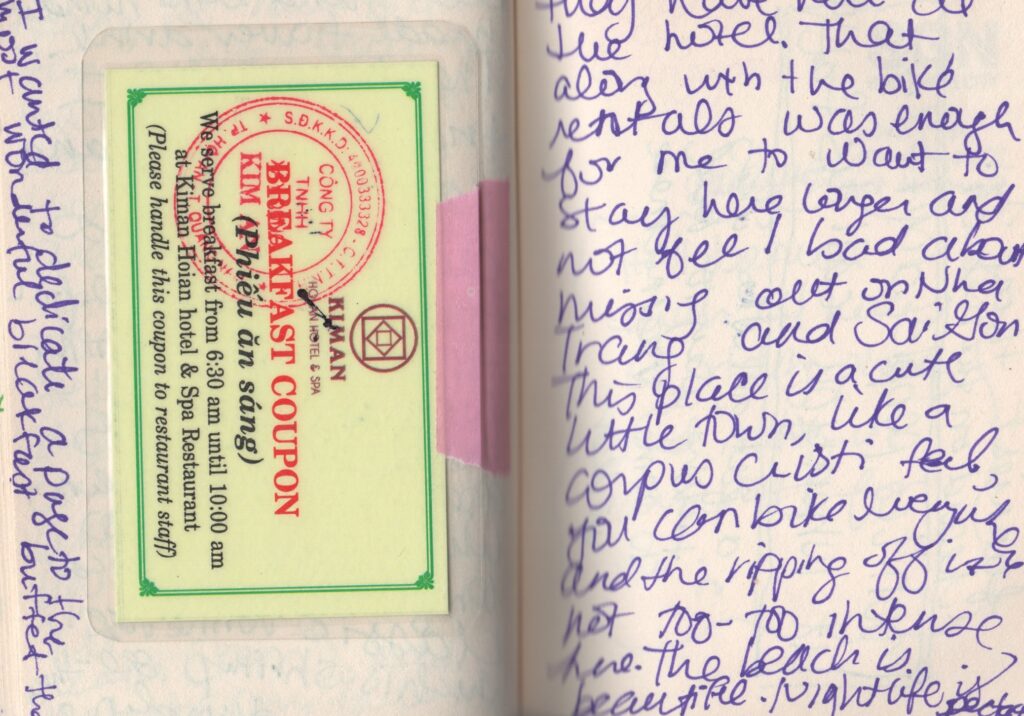 I wanted to dedicate a page to the
most wonderful breakfast buffet
KIMAN
HOIAN HOTEL & SPA
BREAKFAST COUPON
(Phiếu ăn sáng)
We serve breakfast from 6:30 am until 10:00 am
at Kiman Hoian hotel & Spa Restaurant
(Please handle this coupon to restaurant staff)
CÔNG TY
TNHH
KIM
they have
the hotel. That
along with the bike
rentals was enough
for me to want to
stay here longer and
not feel bad about
missing out on Nha
Trang and SaiGon
This place is a cute
little town, like a
corpus Cristi feel,
you can bike
and the ripping off is
not too-too intense
here. The beach is
beautiful. Nightlife is